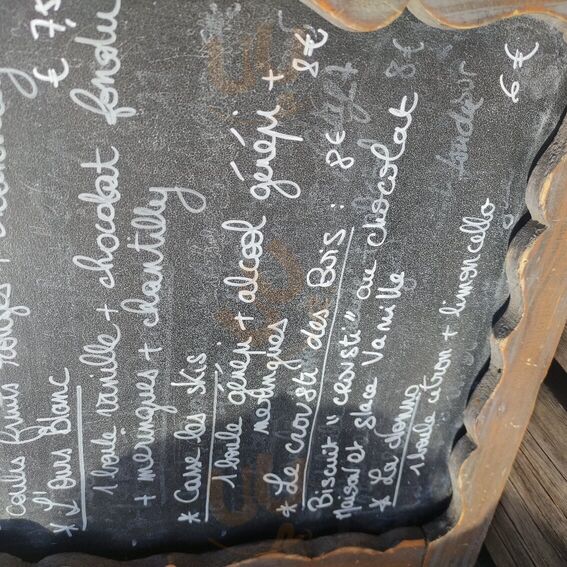 coulis fruits rouges
€ 7,5
* L'ours Blanc
1 boule vanille + chocolat fondu
+ meringues + chantilly
* Casse les skis
1 boule génépi + alcool génépi +
meringues 8€
* Le crousti des Bois : 8€
Biscuit "crousti" au chocolat 8€
Maison et glace Vanille
* Le
1 boule citron + limoncello 6€